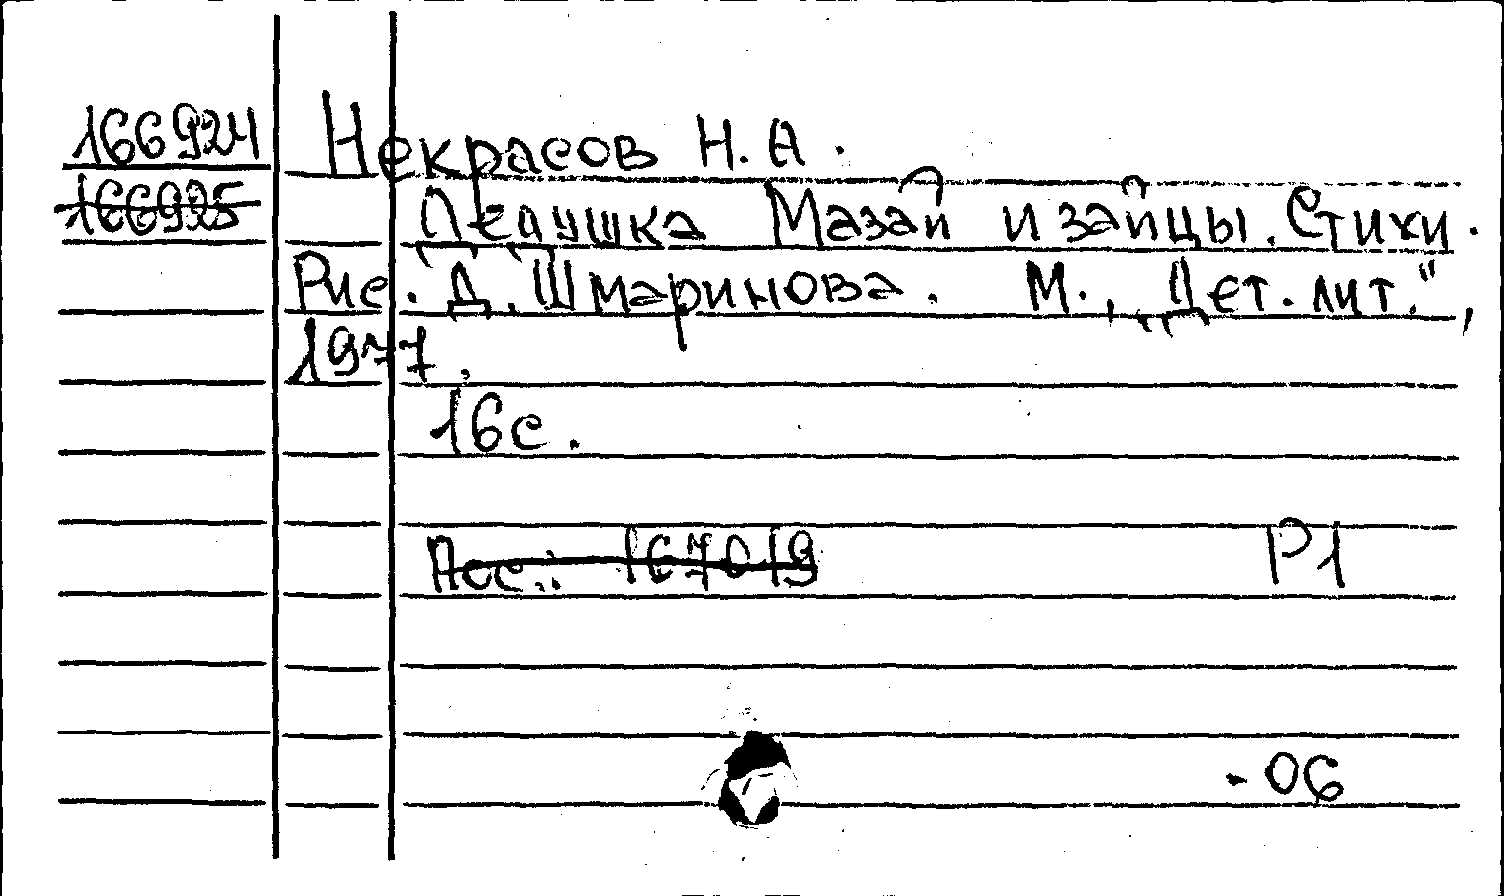 166924 Некрасов Н.А.
166925 Дедушка Мазай и зайцы. Стихи.
Рис. Д. Шмаринова. М., „Дет. лит.",
1977.
16с.
Пос.: 167019 Р1
- 06